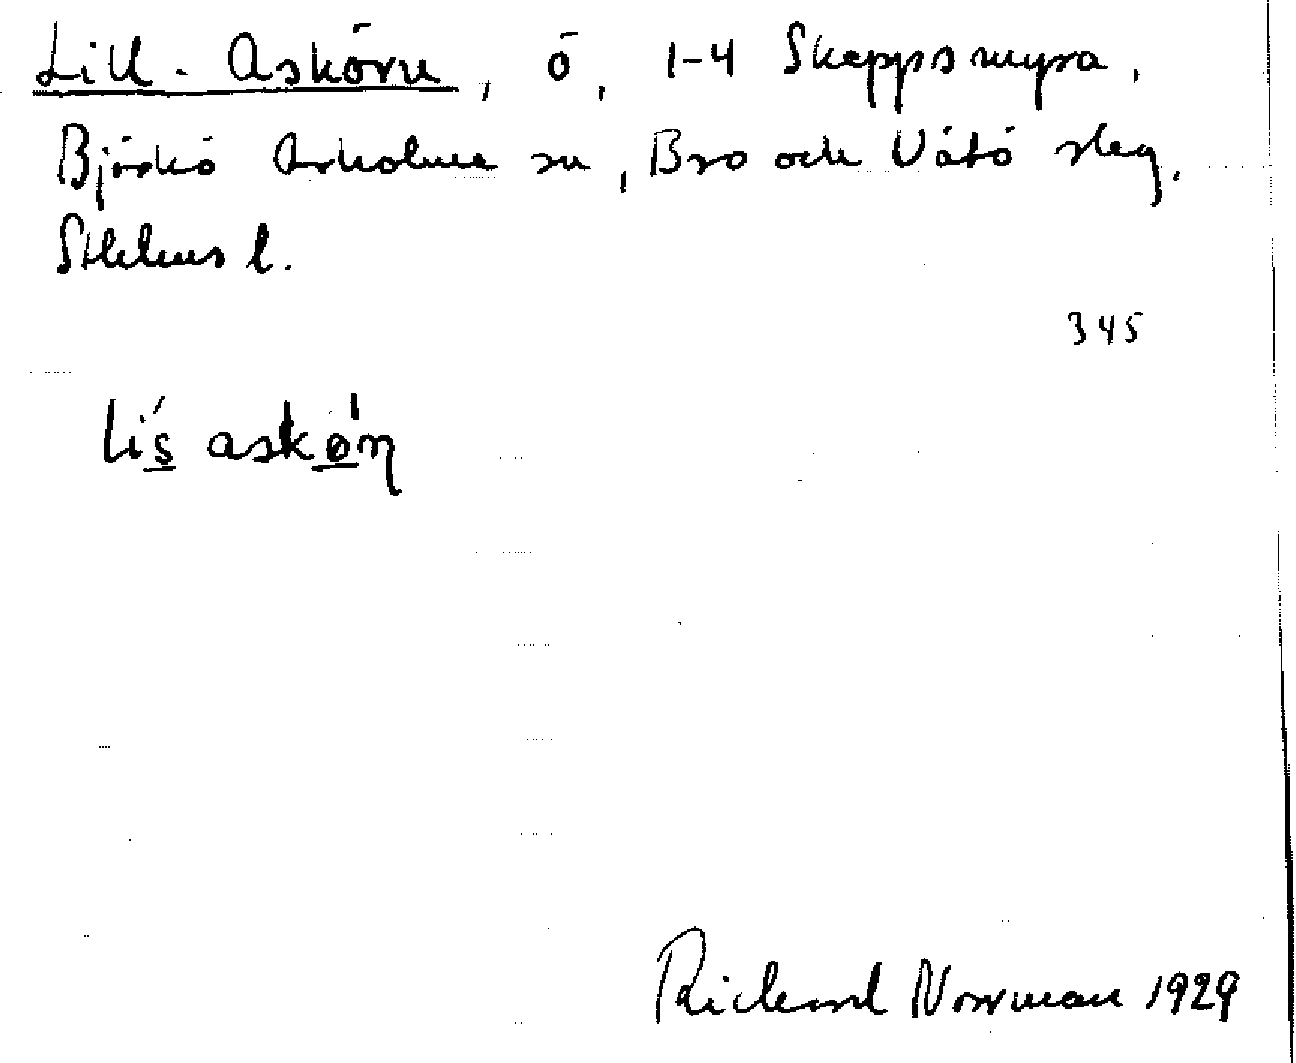 Lill-Askörn, ö, 1-4 Skeppsmyra,
Björkö Arholma sn, Bro och Vätö slag,
Sthlms l.
345
Richard Norrman 1929